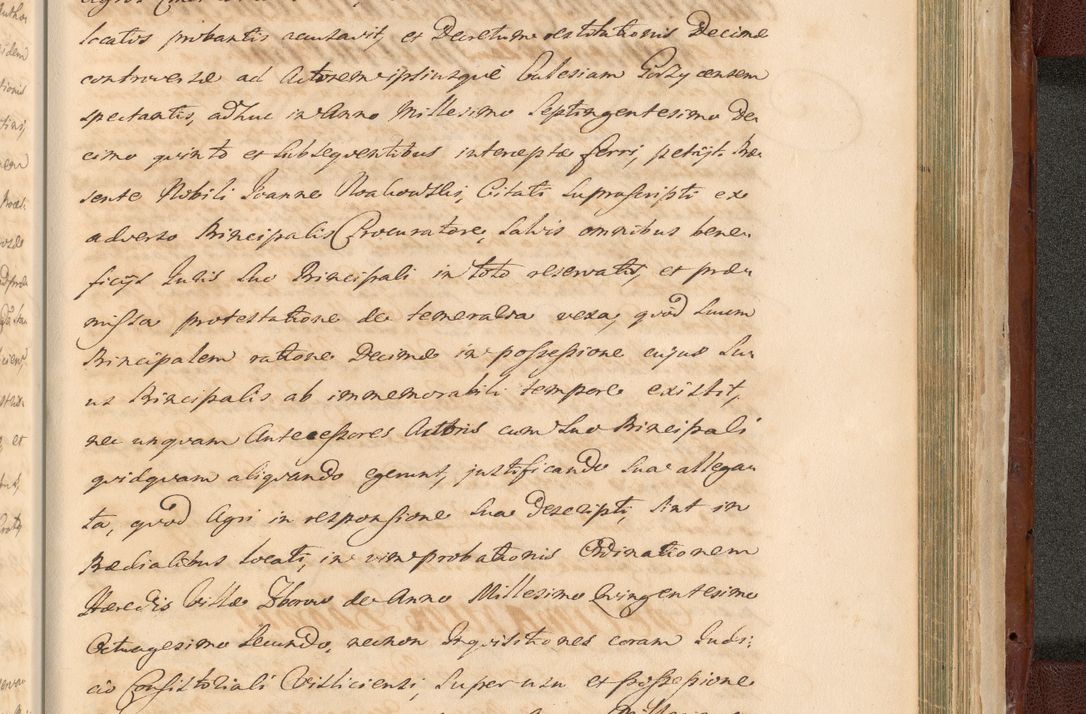 locatos probantis accusavit, et Decretum restitutionis Decimæ
controversæ ad Actorem ipsiusque Ecclesiam Gorzycensem
spectantis, adhuc in Anno Millesimo Septingentesimo De-
cimo quinto et subsequentibus interceptæ ferri, petijt. Præ-
sente Nobili Joanne Noakowski, Citati Suprascripti ex
adverso Principalis Procuratore, Salvis omnibus bene-
ficijs Juris Suo Principali in toto reservatis, et præ-
missa protestatione de temeraria vexa, quod Suum
Principalem ratione Decimæ in possessione cujus Su-
us Principalis ab immemorabili tempore existit,
nec unquam Antecessores Actoris cum Suo Principali
quidquam aliquando egerunt, justificando Sua allega-
ta, quod Agri in responsione Sua descripti, Sint in
Prædialibus locati, in vim probationis Ordinationem
Hæredis Villæ Zborow de Anno Millesimo Quingentesimo
Octuagesimo Secundo, necnon Inquisitiones coram Judi-
cio Consistoriali Visliciensi Super usu et possessione